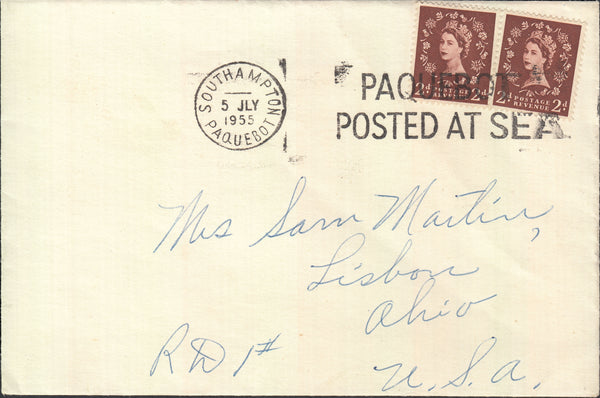 SOUTHAMPTON
5 JLY
1955
PAQUEBOT
PAQUEBOT
POSTED AT SEA
2d 2d
POSTAGE
REVENUE
2d 2d
POSTAGE
REVENUE
Mrs Sam Martin,
Lisbon
Ohio
RD 1#
U.S.A.